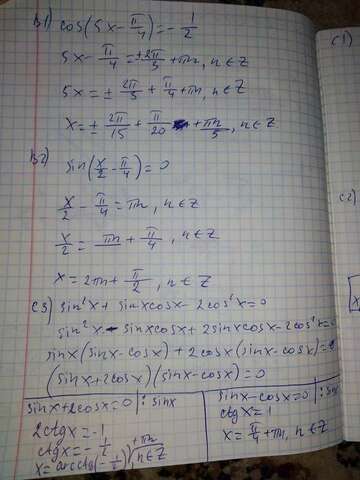 B1) cos(5x - π/4) = - 1/2
5x - π/4 = ± 2π/5 + πn, n ∈ Z
5x = ± 2π/5 + π/4 + πn, n ∈ Z
x = ± 2π/15 + π/20 + πn/5, n ∈ Z
B2) sin(x/2 - π/4) = 0
x/2 - π/4 = πn, n ∈ Z
x/2 = πn + π/4, n ∈ Z
x = 2πn + π/2, n ∈ Z
C3) sin²x + sinxcosx - 2cos²x = 0
sin²x - sinxcosx + 2sinxcosx - 2cos²x = 0
sinx(sinx - cosx) + 2cosx(sinx - cosx) = 0
(sinx + 2cosx)(sinx - cosx) = 0
sinx + 2cosx = 0 | : sinx
2ctgx = -1
ctgx = - 1/2
x = arcctg(- 1/2) + πn, n ∈ Z
sinx - cosx = 0 | : sinx
ctgx = 1
x = π/4 + πn, n ∈ Z
C1)
C2)